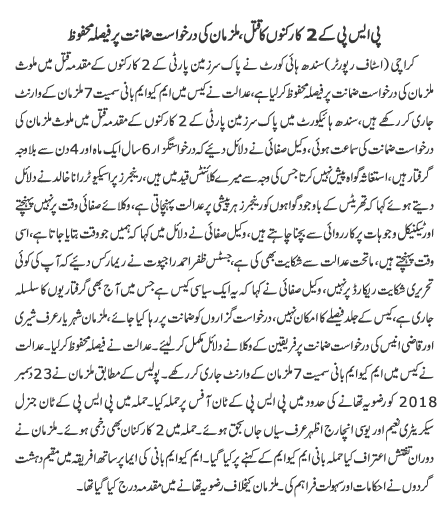 پی ایس پی کے 2 کارکنوں کا قتل، ملزمان کی درخواست ضمانت پر فیصلہ محفوظ
کراچی (اسٹاف رپورٹر) سندھ ہائی کورٹ نے پاک سرزمین پارٹی کے 2 کارکنوں کے مقدمہ قتل میں ملوث
ملزمان کی درخواست ضمانت پر فیصلہ محفوظ کرلیا ہے، عدالت نے کیس میں ایم کیو ایم بانی سمیت 7 ملزمان کے وارنٹ
جاری کر رکھے ہیں، سندھ ہائیکورٹ میں پاک سرزمین پارٹی کے 2 کارکنوں کے مقدمہ قتل میں ملوث ملزمان کی
درخواست ضمانت کی سماعت ہوئی، وکیل صفائی نے دلائل دیئے کہ درخواستگزار 6 سال ایک ماہ اور 4 دن سے بلاوجہ
گرفتار ہیں، استغاثہ گواہ پیش نہیں کرتا جس کی وجہ سے میرے کلائنٹس قید میں ہیں، رینجرز پراسیکیوٹر رانا خالد نے دلائل
دیتے ہوئے کہا کہ تھریٹس کے باوجود گواہوں کو رینجرز ہر پیشی پر عدالت پہنچاتی ہے، وکلائے صفائی وقت پر نہیں پہنچتے
اور ٹیکنیکل وجوہات پر کارروائی سے بچنا چاہتے ہیں، وکیل صفائی نے دلائل میں کہا کہ ہمیں جو وقت بتایا جاتا ہے، اسی
وقت پہنچتے ہیں، ماتحت عدالت سے شکایت بھی کی ہے، جسٹس ظفر احمد راجپوت نے ریمارکس دیئے کہ آپ کی کوئی
تحریری شکایت ریکارڈ پر نہیں، وکیل صفائی نے کہا کہ یہ ایک سیاسی کیس ہے جس میں آج بھی گرفتاریوں کا سلسلہ
جاری ہے، کیس کے جلد فیصلے کا امکان نہیں، درخواست گزاروں کو ضمانت پر رہا کیا جائے، ملزمان شہریار عرف شیری
اور قاضی انیس کی درخواست ضمانت پر فریقین کے وکلا نے دلائل مکمل کر لیئے۔ عدالت نے فیصلہ محفوظ کرلیا۔ عدالت
نے کیس میں ایم کیو ایم بانی سمیت 7 ملزمان کے وارنٹ جاری کر رکھے۔ پولیس کے مطابق ملزمان نے 23 دسمبر
2018 کو رضویہ تھانے کی حدود میں پی ایس پی کے ٹان آفس پر حملہ کیا۔ حملہ میں پی ایس پی کے ٹان جنرل
سیکریٹری نعیم اور یوسی انچارج اظہر عرف سیاں جاں بحق ہوئے۔ حملہ میں 2 کارکنان بھی زخمی ہوئے۔ ملزمان نے
دوران تفتیش اعتراف کیا حملہ بانی ایم کیو ایم کے کہنے پر کیا گیا۔ ایم کیو ایم بانی کی ایما پر ساتھ افریقہ میں مقیم دہشت
گردوں نے احکامات اور سہولت فراہم کی۔ ملزمان کیخلاف رضویہ تھانے میں مقدمہ درج کیا گیا تھا۔